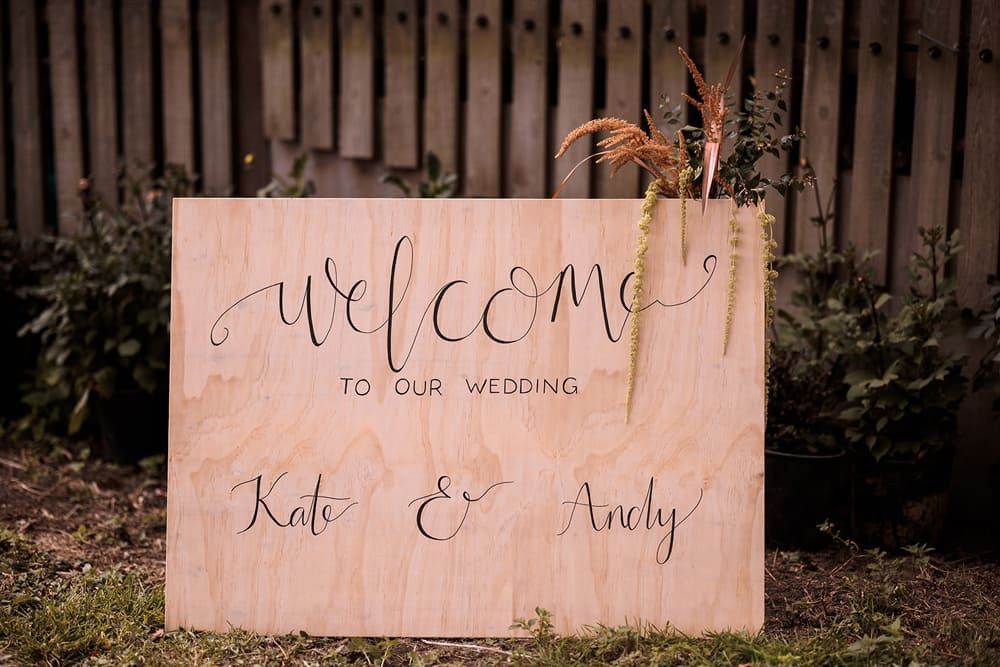 welcome
TO OUR WEDDING
Kate & Andy